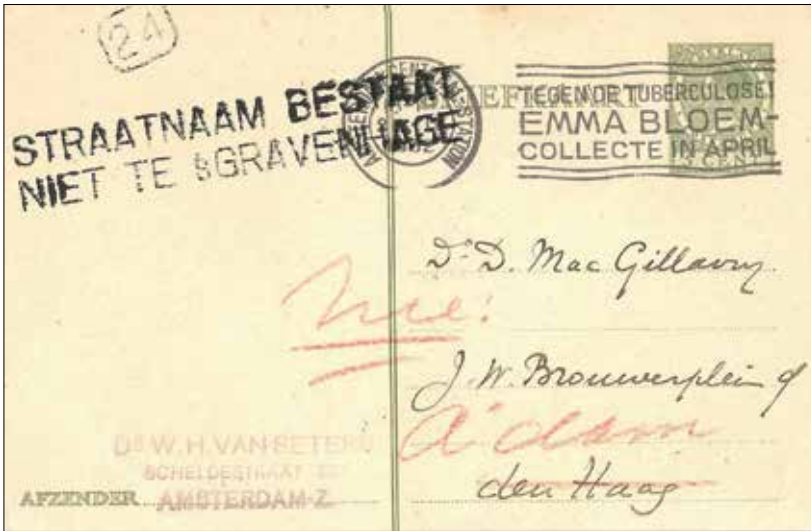 24
STRAATNAAM BESTAAT
NIET TE 'SGRAVENHAGE
AMSTERDAM CENTRAAL-STATION
BRIEFKAART
TEGEN DE TUBERCULOSE!
EMMA BLOEM-
COLLECTE IN APRIL
CENT
Dr. D. Mac Gillavry
J. W. Brouwersplein 9
A'dam
den Haag
Dr W. H. VAN SETERS
SCHELDESTRAAT
AMSTERDAM-Z.
AFZENDER